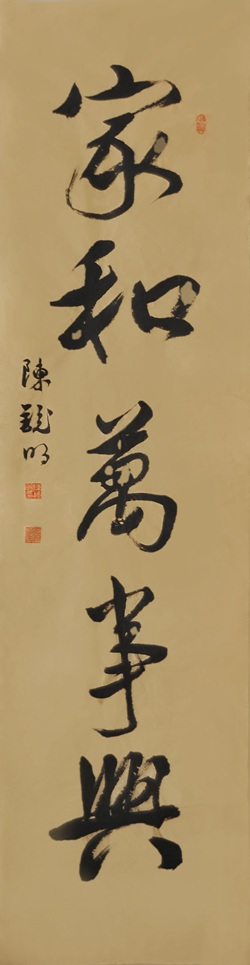 家和萬事興
陳明